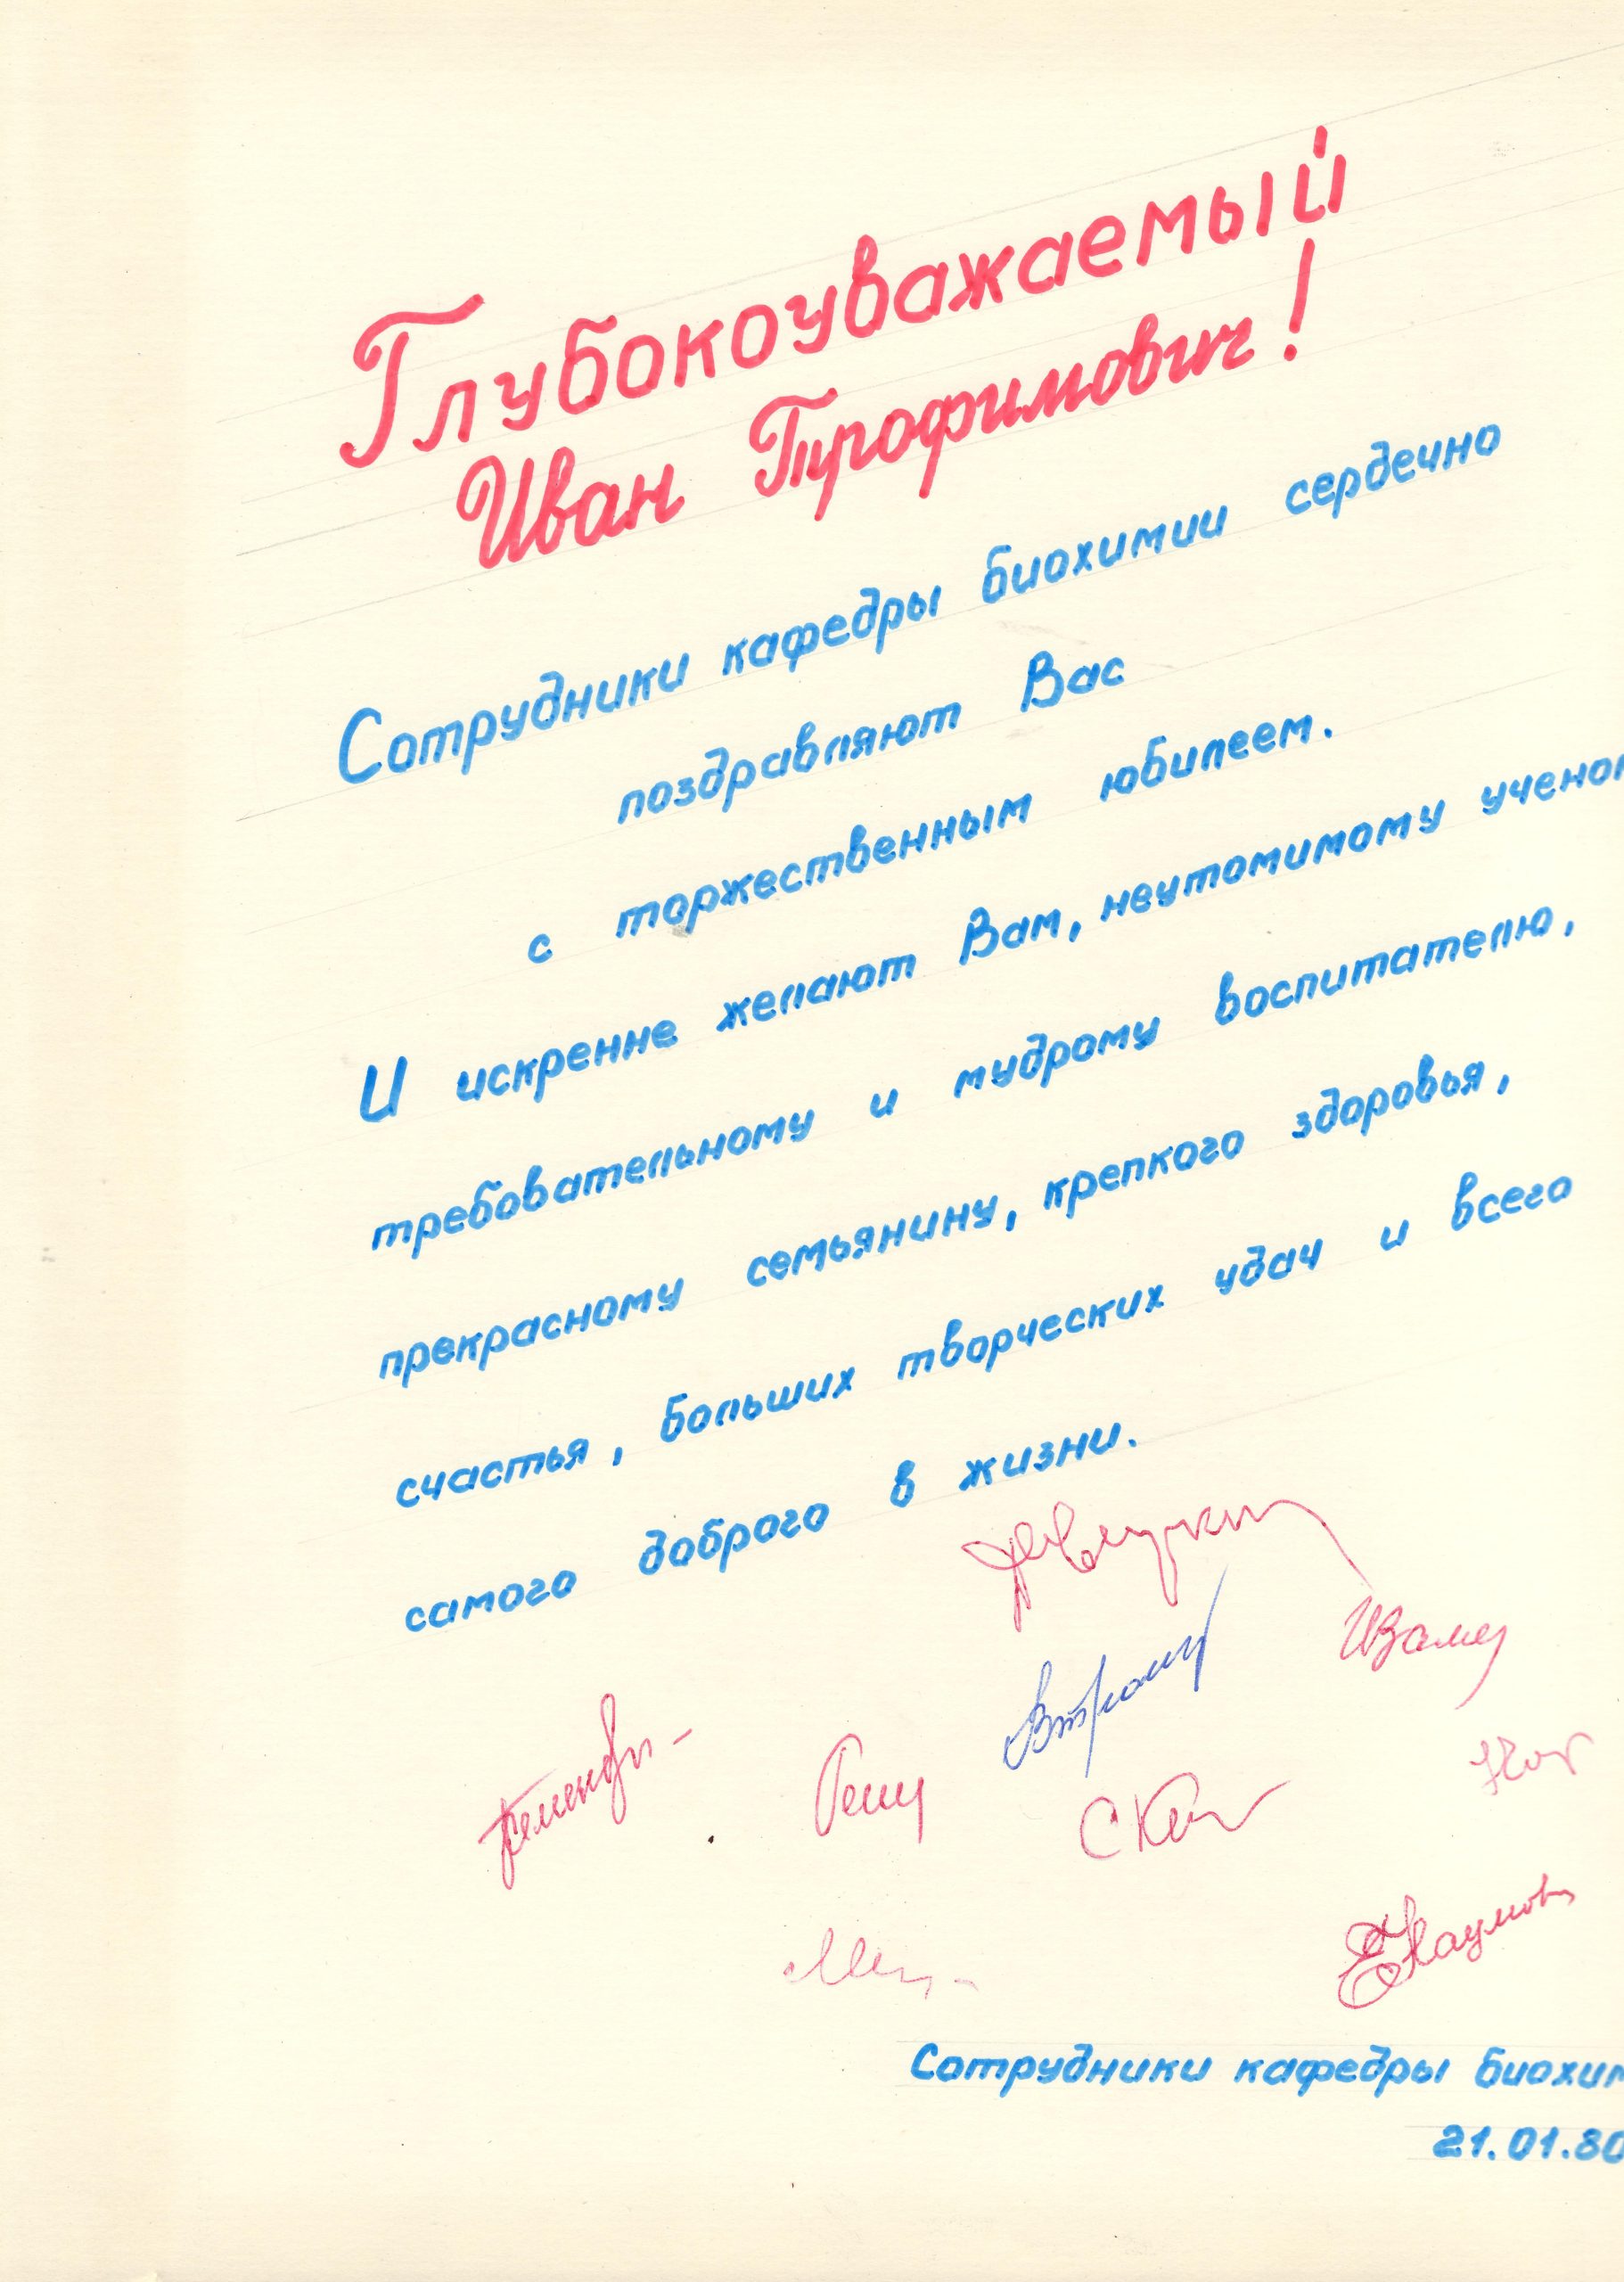 Глубокоуважаемый
Иван Трофимович!
Сотрудники кафедры биохимии сердечно
поздравляют Вас
с торжественным юбилеем.
И искренне желают Вам, неутомимому
требовательному и мудрому воспитателю,
прекрасному семьянину, крепкого здоровья,
счастья, больших творческих удач и всего
самого доброго в жизни.
ЕНаумова
Сотрудники кафедры
21.01.80